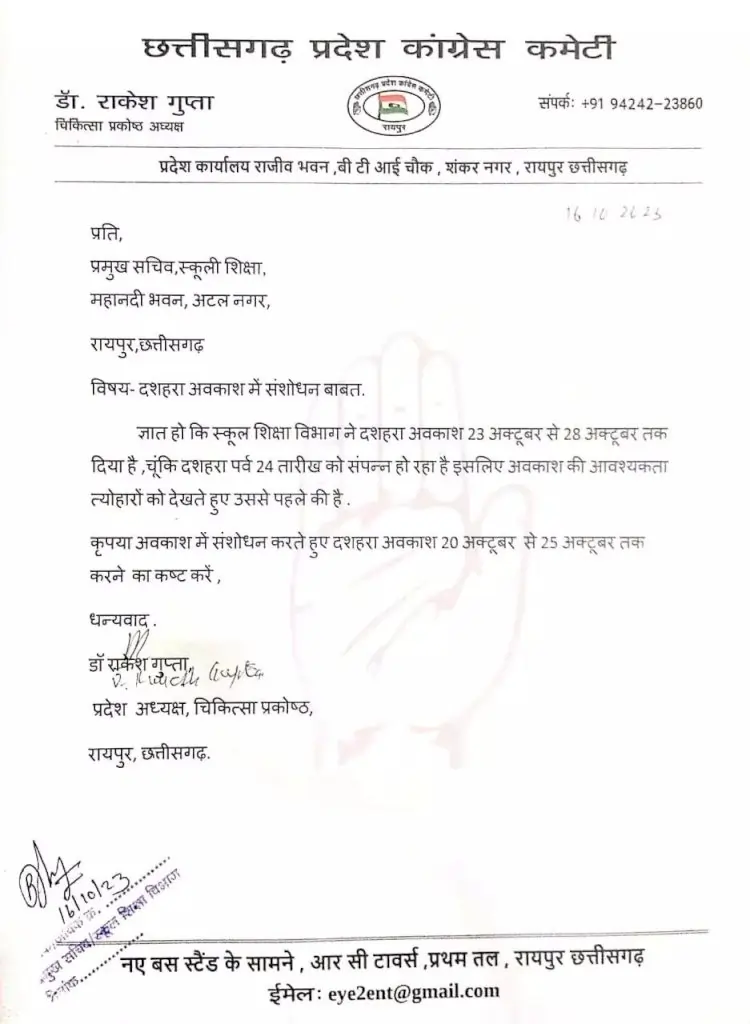 छत्तीसगढ़ प्रदेश कांग्रेस कमेटी
डॉ. राकेश गुप्ता
चिकित्सा प्रकोष्ठ अध्यक्ष
छत्तीसगढ़ प्रदेश कांग्रेस कमेटी
रायपुर
संपर्कः +91 94242-23860
प्रदेश कार्यालय राजीव भवन ,बी टी आई चौक , शंकर नगर , रायपुर छत्तीसगढ़
16 10 2023
प्रति,
प्रमुख सचिव,स्कूली शिक्षा,
महानदी भवन, अटल नगर,
रायपुर,छत्तीसगढ़
विषय- दशहरा अवकाश में संशोधन बाबत.
ज्ञात हो कि स्कूल शिक्षा विभाग ने दशहरा अवकाश 23 अक्टूबर से 28 अक्टूबर तक
दिया है ,चूंकि दशहरा पर्व 24 तारीख को संपन्न हो रहा है इसलिए अवकाश की आवश्यकता
त्योहारों को देखते हुए उससे पहले की है .
कृपया अवकाश में संशोधन करते हुए दशहरा अवकाश 20 अक्टूबर से 25 अक्टूबर तक
करने का कष्ट करें ,
धन्यवाद .
डॉ राकेश गुप्ता,
Dr. Rakesh Gupta
प्रदेश अध्यक्ष, चिकित्सा प्रकोष्ठ,
रायपुर, छत्तीसगढ़.
16/10/23
सचिव/स्कूल शिक्षा विभाग
नए बस स्टैंड के सामने , आर सी टावर्स ,प्रथम तल , रायपुर छत्तीसगढ़
ईमेलः eye2ent@gmail.com